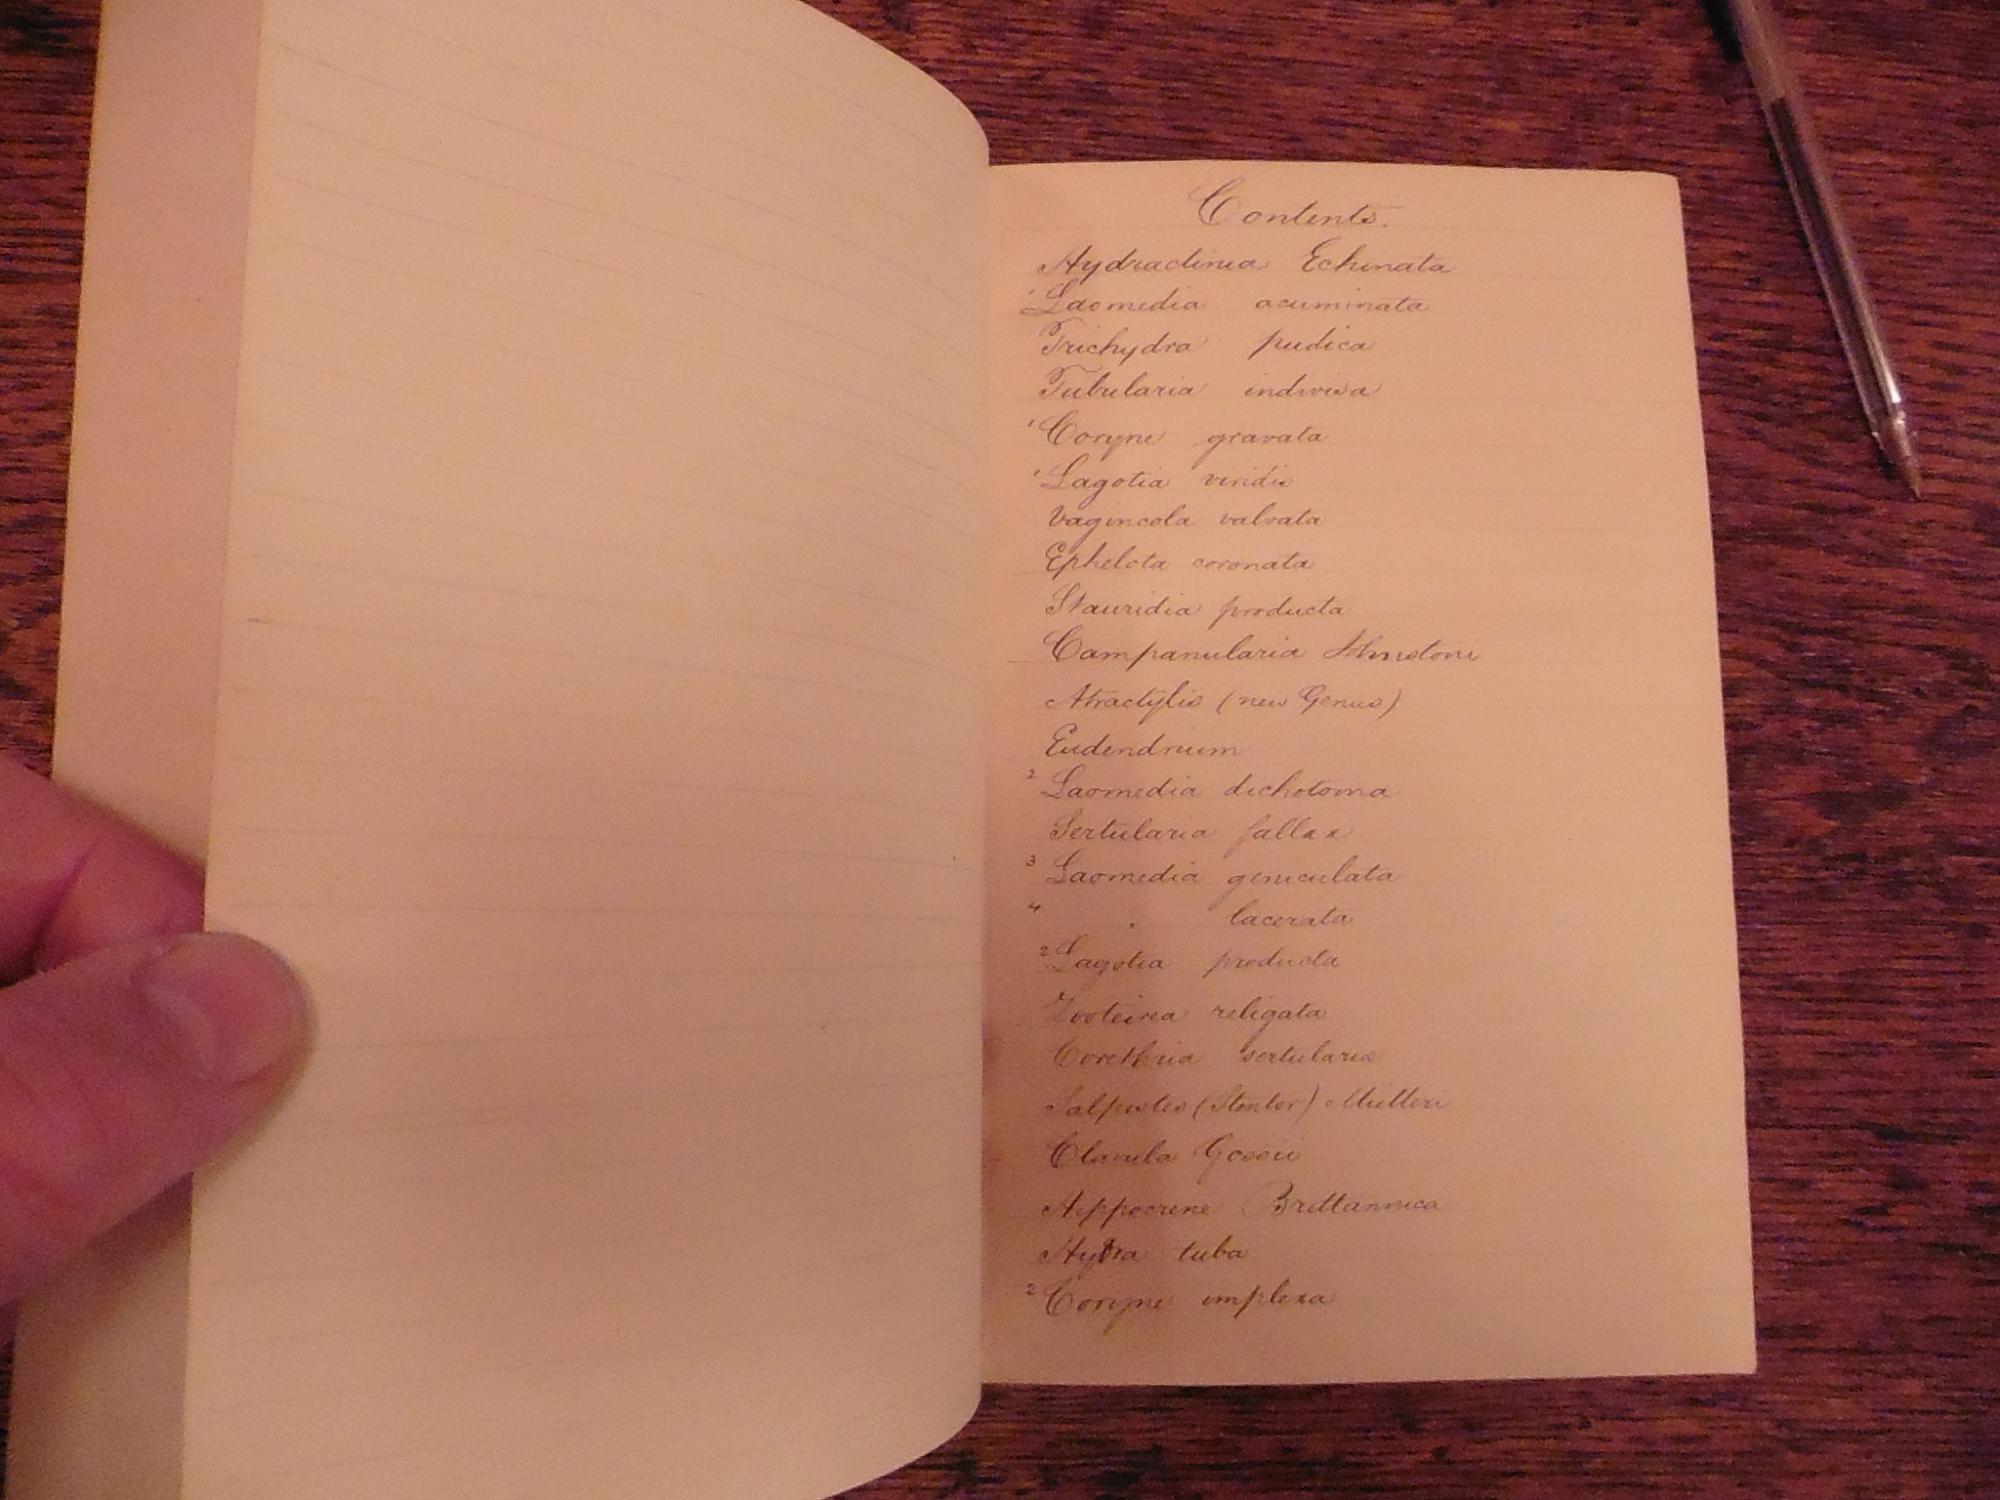 Contents.
Hydractinia Echinata
1 Laomedia acuminata
Trichydra pudica
Tubularia indivisa
1 Coryne gravata
1 Lagotia viridis
Vagincola valvata
Ephelota coronata
Stauridia producta
Campanularia Johnstoni
Atractylis (new Genus)
Eudendrium
2 Laomedia dichotoma
Sertularia fallax
3 Laomedia geniculata
4 " lacerata
2 Lagotia producta
Zooteirea religata
Corethria sertularia
(Stentor) Mülleri
Clavula Gossii
Hippocrene Brittannica
Hydra tuba
2 Coryne implexa